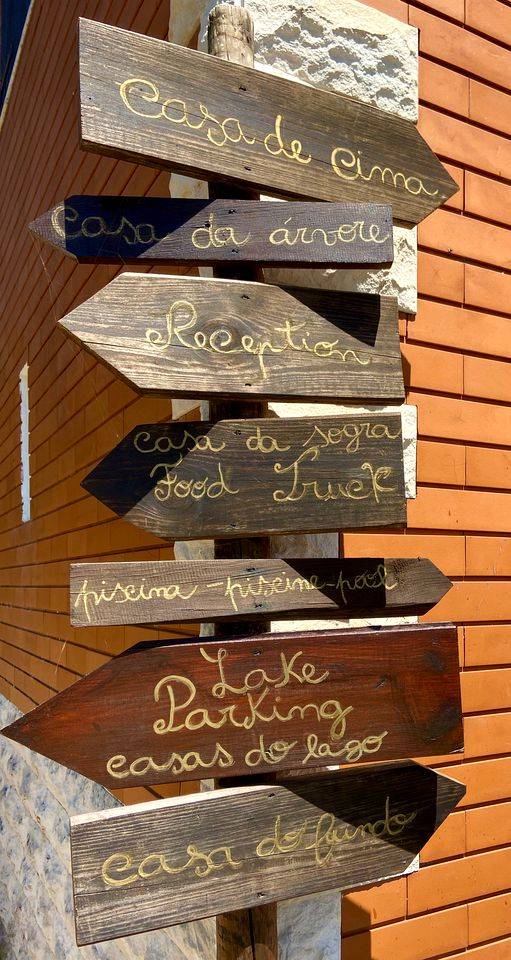 Casa de Cima
Casa da árvore
Reception
casa da sogra
Food Truck
piscina - piscine - pool
Lake
Parking
casas do lago
casa do fundo